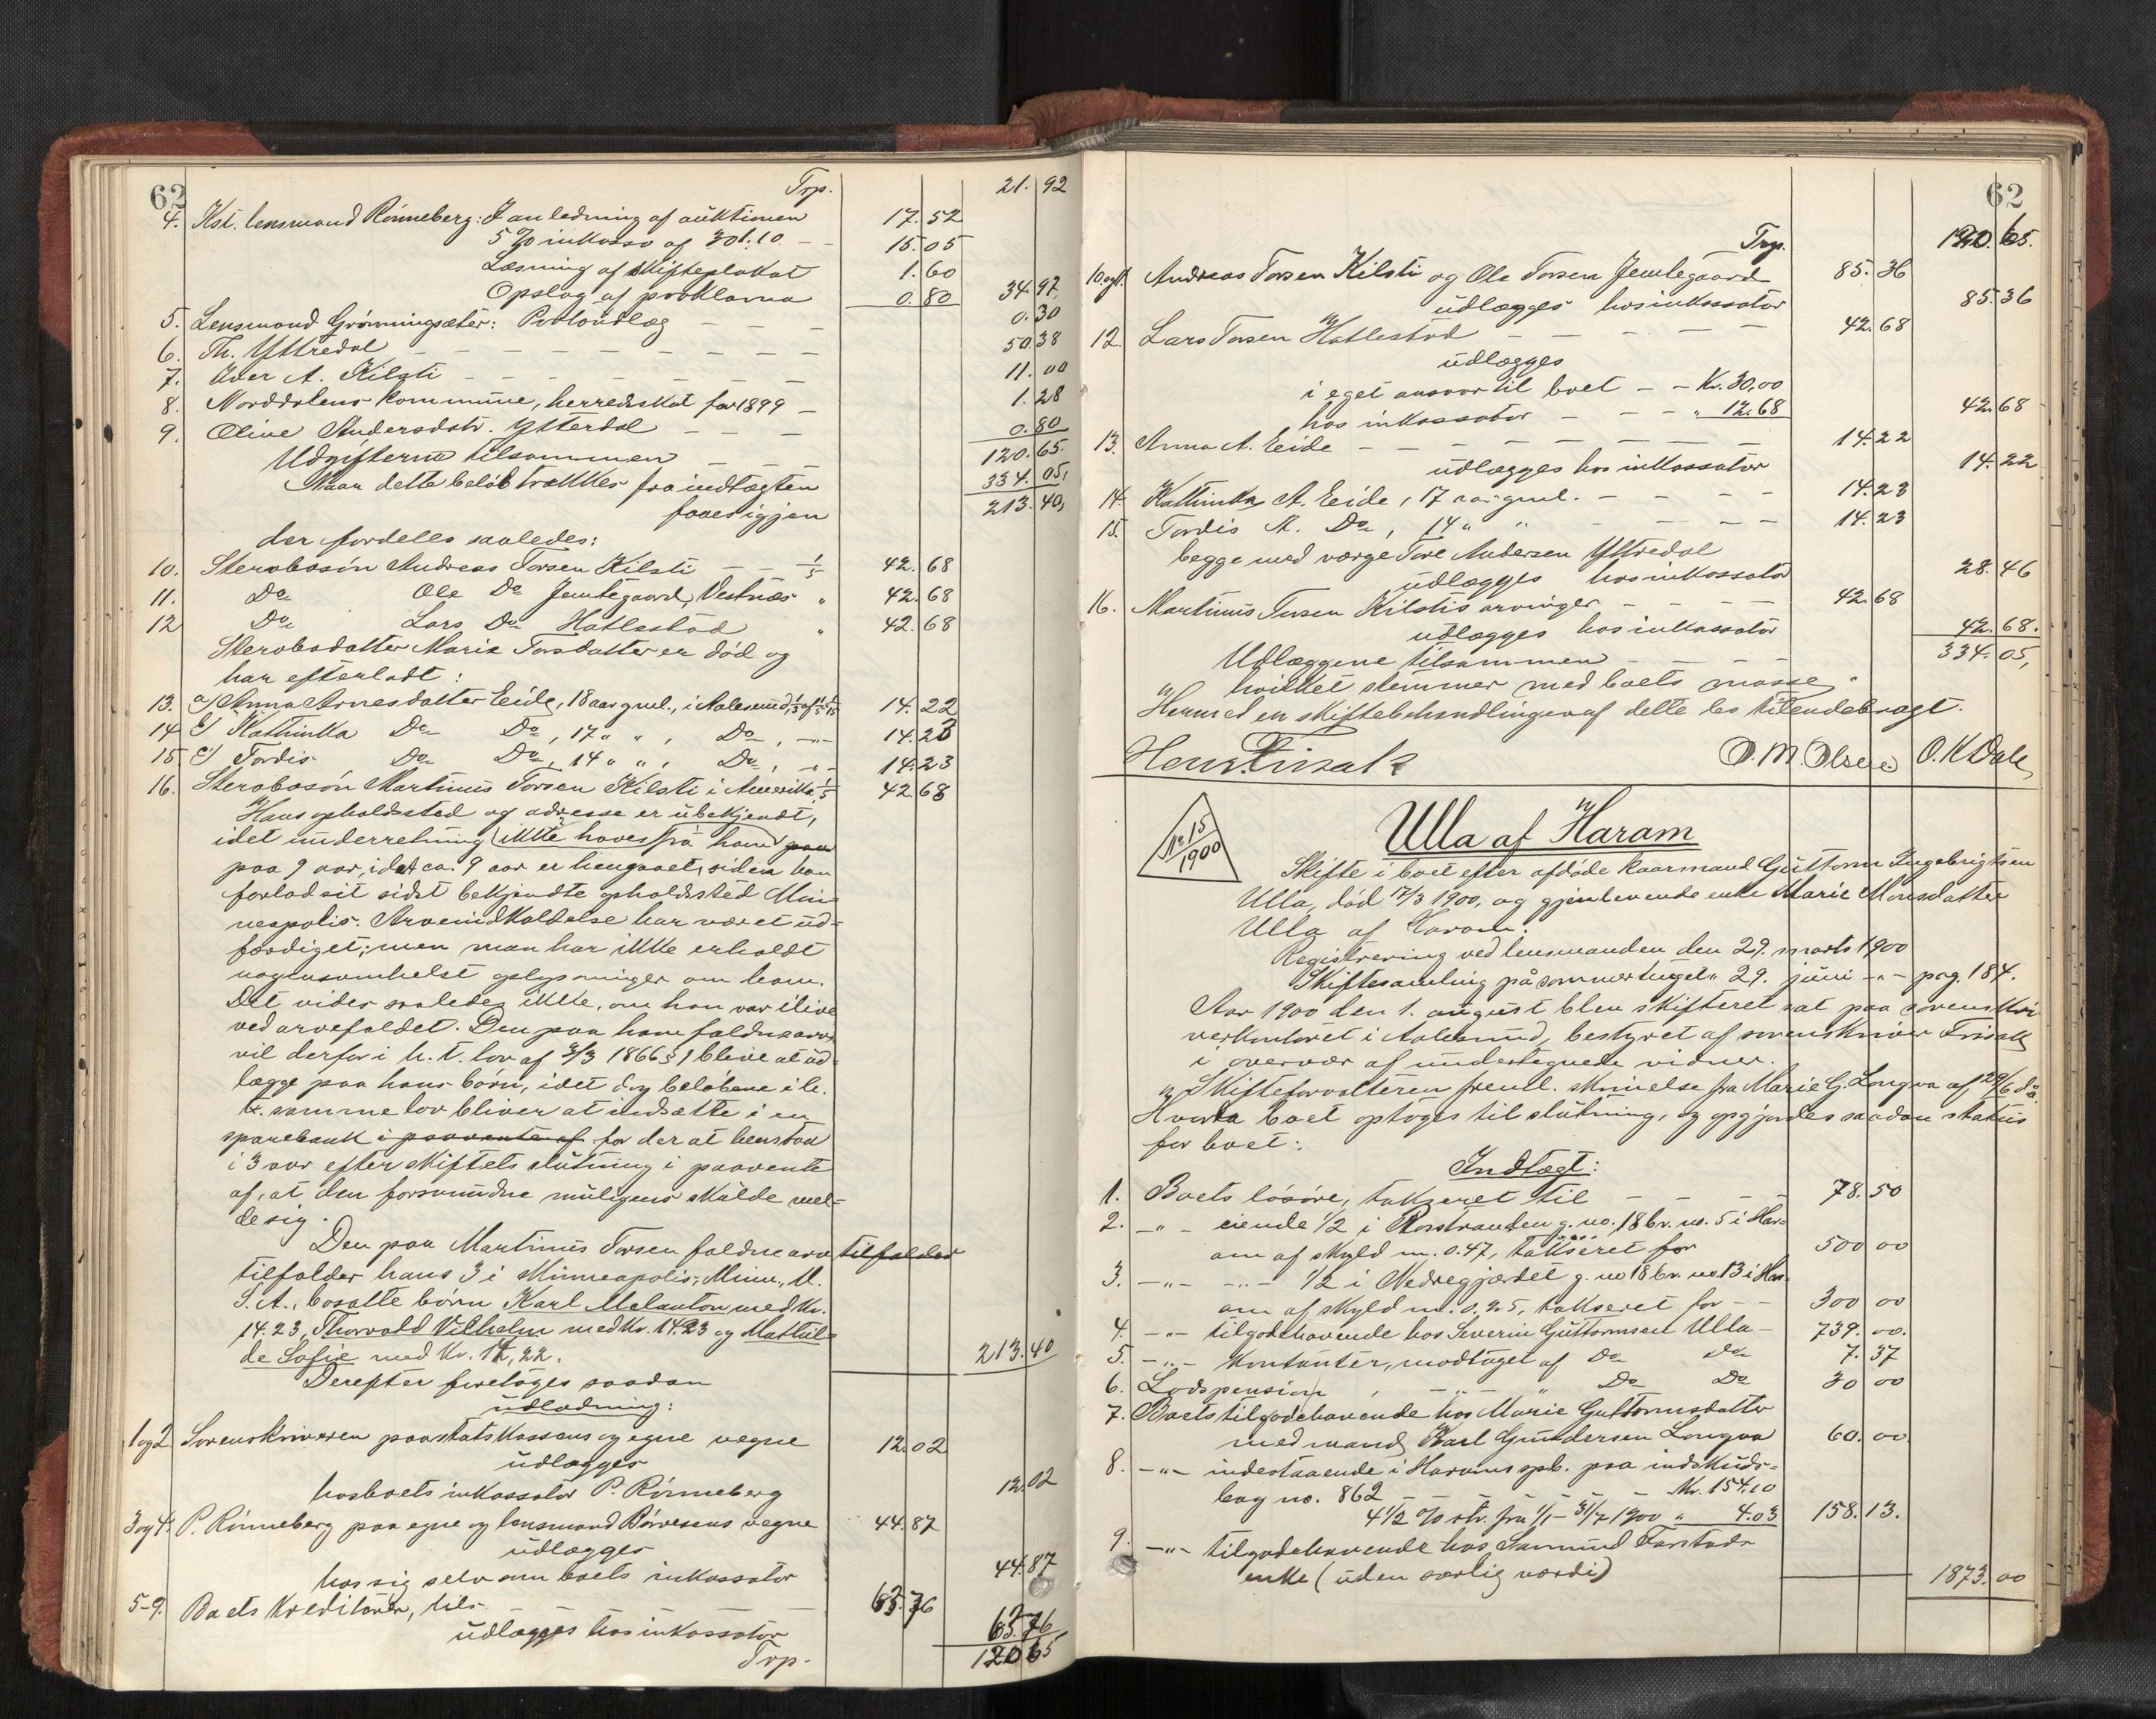 62
Trp. 21.92
4. Kst. lensmand Rønneberg: I anledning af auktionen 17.52
5 % inkasso af 301.10 - - 15.05
Læsning af skifteplakat 1.60
Opslag af proklama 0.80 34.97,
5. Lensmand Grønningsæter: Portoudlæg - - - 0.30
6. Th. Yttredal - - - - - - - - 50.38
7. Iver A. Kilsti - - - - - - - 11.00
8. Norddalens kommune, herredskat for 1899 - 1.28
9. Oline Andersdatr. Ytterdal - - - 0.80
Udgifterne tilsammen - - - 120.65.
Naar dette beløb trækkes fra indtægten 334.05,
faaes igjen 213.40,
der fordeles saaledes:
10. Sterbosøn Andreas Torsen Kilsti - - 1/5 42.68
11. Do Ole Do Jemtegaard, Vestnæs " 42.68
12 Do Lars Do Hatlestad " 42.68
Sterbodatter Marie Torsdatter er død og
har efterladt:
13. a) Anna Arnesdatter Eide, 18 aar gml., i Aalesund, 1/3 af 1/5 = 1/15 14.22
14 b) Kathinka Do Do, 17 " ", Do, -"- 14.23
15 c) Tordis Do Do, 14 " ", Do, -"- 14.23
16. Sterbosøn Martinus Torsen Kilsti i Amerika 1/5 42.68
Hans opholdssted og adresse er ubekjendt,
idet underretning ikke haves fra ham paa
paa 9 aar, idet ca. 9 aar er hengaaet, siden han
forlod sit sidst bekjendte opholdssted Min-
neapolis. Arveindkaldelse har været ud-
færdiget; men man har ikke erholdt
nogensomhelst oplysninger om ham.
Det vides saaledes ikke, om han var ilive
ved arvefaldet. Den paa ham faldne arv
vil derfor i h. t. lov af 3/3 1866 § 1 blive at ud-
lægge paa hans børn, idet dog beløbene i h.
t. samme lov bliver at indsætte i en
sparebank i paavente af for der at henstaa
i 3 aar efter skiftets slutning i paavente
af, at den forsvundne muligens skulde mel-
de sig.
Den paa Martinus Torsen faldne arv tilfalder
tilfalder hans 3 i Minneapolis, Minn., U.
S. A., bosatte børn Karl Melanton med kr.
14.23, Thorvald Vilhelm med kr. 14.23 og Mathil-
de Sofie med kr. 14,22. 213.40
Derefter foretoges saadan
udlodning:
1 og 2. Sorenskriveren paa statskassens og egne vegne 12.02
udlægges
hos boets inkassator P. Rønneberg 12.02
3 og 4. P. Rønneberg paa egne og lensmand vegne 44.87
udlægges
hos sig selv som boets inkassator 44.87
5-9. Boets kreditorer, tils. - - - - 63.76
udlægges hos inkassator 63.76
Trp. 120.65
62
Trp. 120.65.
10 og 11. Andreas Torsen Kilsti og Ole Torsen Jemtegaard 85.36
udlægges hos inkassator 85.36
12. Lars Torsen Hatlestad - - - - - 42.68
udlægges
i eget ansvar til boet - - Kr. 30,00
hos inkassator - - - - " 12.68 42.68
13. Anna A. Eide - - - - - - 14.22
udlægges hos inkassator 14.22
14. Kathinka A. Eide, 17 aar gml. - - - - 14.23
15. Tordis A. Do, 14 " " - - - - 14.23
begge med værge Tore Andersen Yttredal
udlægges hos inkassator 28.46
16. Martinus Torsen Kilstis arvinger - - - - 42.68
udlægges hos inkassator 42.68.
Udlæggene tilsammen - - - - 334.05,
hvilket stemmer med boets masse.
Hermed en skiftebehandlingen af dette bo tilendebragt.
Hens. Finsak O. M. Olsen O. K Dale
No 15/1900
Ulla af Haram
Skifte i boet efter afdøde kaarmand Guttorm Ingebrigtsen
Ulla, død 17/3 1900, og gjenlevende enke Marie Monsdatter
Ulla af Haram.
Registrering ved lensmanden den 29. marts 1900
Skiftesamling på sommertinget " 29. juni -"- pag. 184.
Aar 1900 den 1. august blev skifteret sat paa sorenskri-
verkontoret i Aalesund, bestyret af sorenskriver Finsak
i overvær af undertegnede vidner.
Skifteforvalteren freml. skrivelse fra Marie G. Longva af 29/6 d. å.
Hvorpaa boet optoges til slutning, og opgjordes saadan status
for boet:
Indtægt:
1. Boets løsøre, takseret til - - - - 78.50
2. -"- eiende 1/2 i Rosstranden g. no. 18 br. no. 5 i Har-
am af skyld m. 0.47, takseret for 500 00
3. -"- -"- 1/2 i Nedregjærdet g. no 18 br. no. 13 i Har-
am af skyld m. 0.25, takseret for - - 300 00
4. -"- tilgodehavende hos Severin Guttormsen Ulla - 739.00.
5. -"- kontanter, modtaget af Do Do 7.37
6. Lodspension, -"- " Do Do 30 00
7. Boets tilgodehavende hos Marie Guttormsdatter
med mand Karl Gundersen Longva 60.00.
8. -"- indestaaende i Harams spb. paa indskuds-
bog no. 862 - - - - - Kr. 154.10
4 1/2 % rtr. fra 1/1 - 31/7 1900 " 4.03 158.13.
9. -"- tilgodehavende hos Samund Farstads
enke (uden særlig værdi) 1873.00